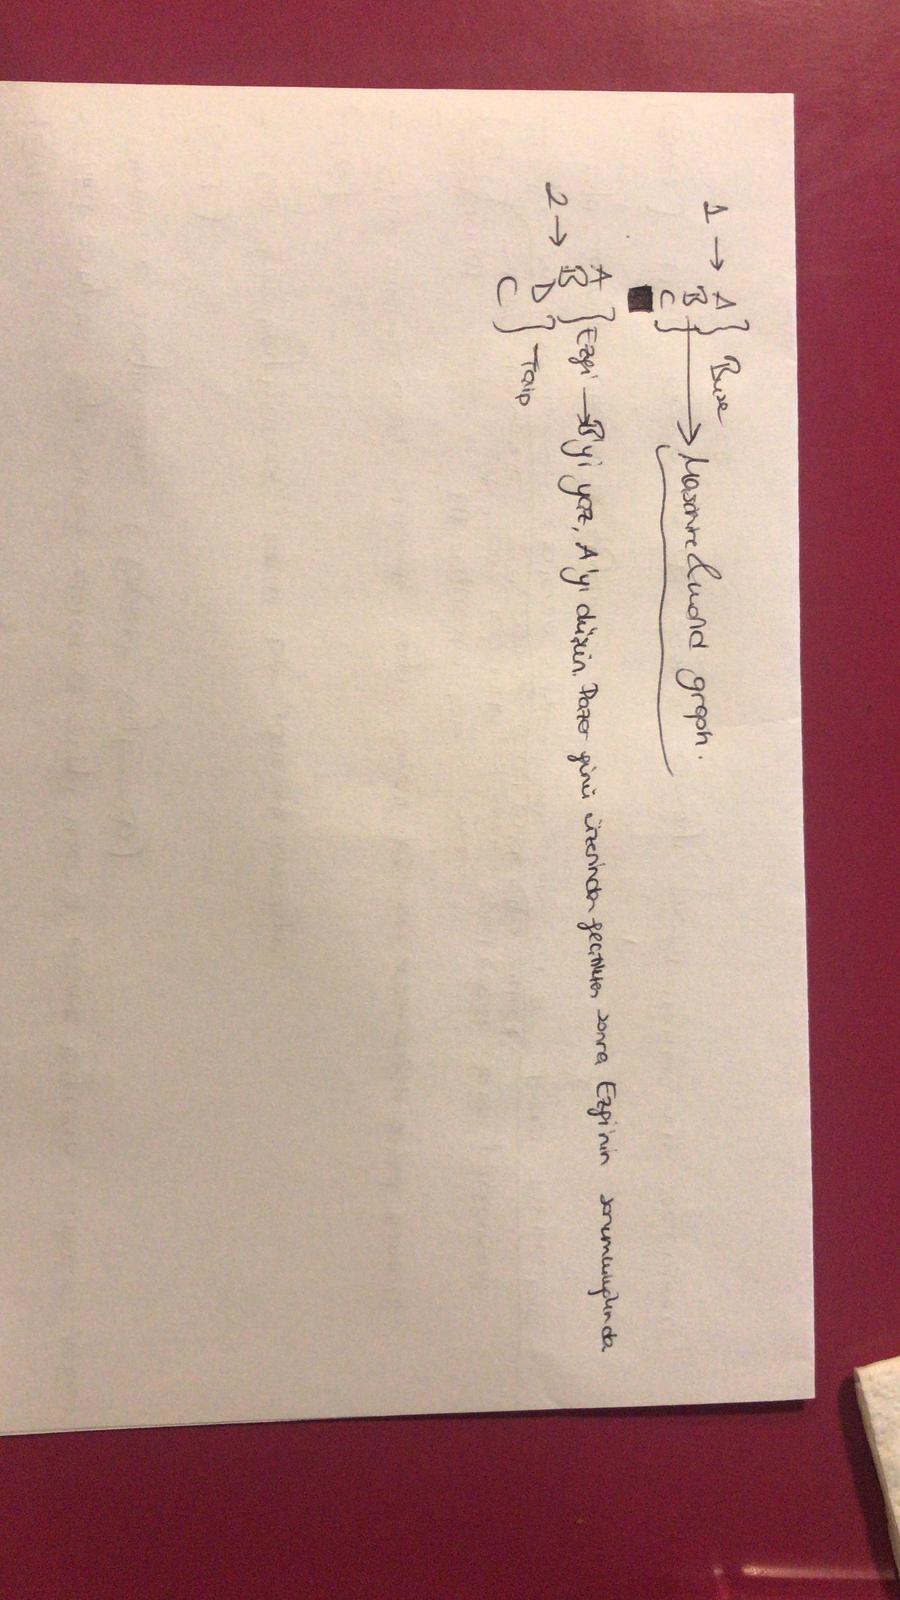 1 → A } Buse
B → & word graph.
C
A } Ezgi → B'yi yaz, A'yı düşün. Pazar günü üzerinden geçtikten sonra Ezgi'nin sorumluluğunda
2 → B
D } Taip
C